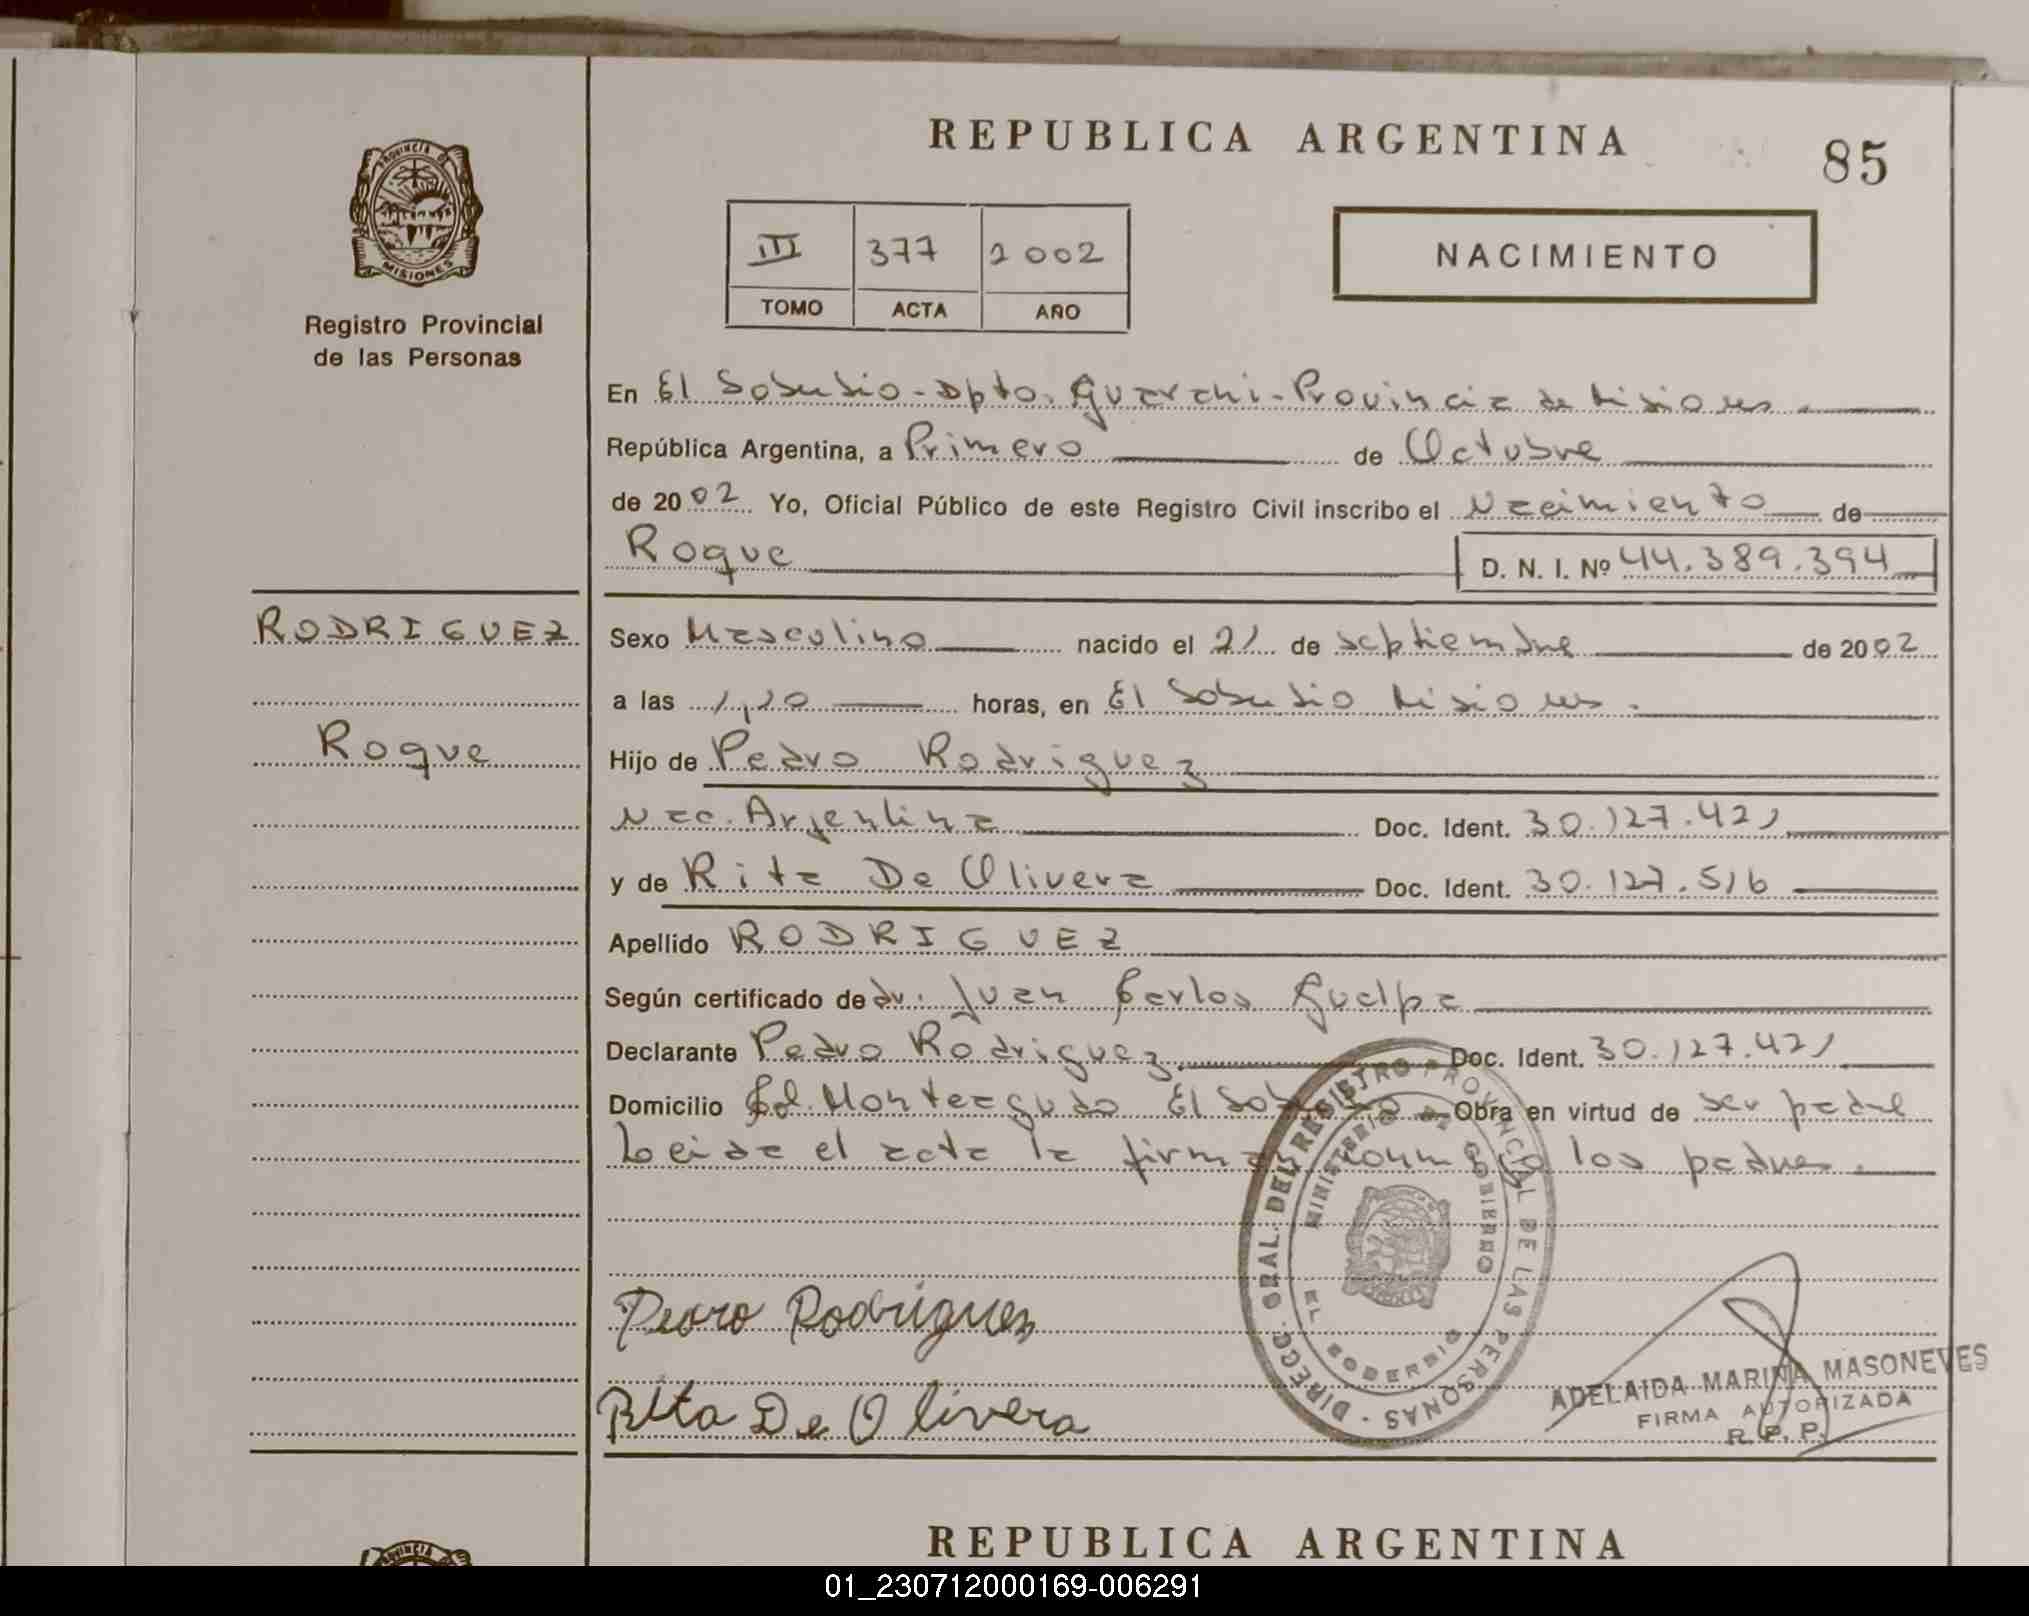 REPUBLICA ARGENTINA
85
PROVINCIA DE
MISIONES
Registro Provincial
de las Personas
III 377 2002
TOMO ACTA AÑO
NACIMIENTO
En El Soberbio - Dpto. Guarani - Provincia de Misiones
República Argentina, a Primero de Octubre
de 2002 Yo, Oficial Público de este Registro Civil inscribo el Nacimiento de
Roque D. N. I. Nº 44.389.394
RODRIGUEZ
Roque
Sexo Masculino nacido el 21 de septiembre de 2002
a las 1,20 horas, en El Soberbio Misiones.
Hijo de Pedro Rodriguez
Nac. Argentina Doc. Ident. 30.127.421
y de Rita De Olivera Doc. Ident. 30.127.516
Apellido RODRIGUEZ
Según certificado de dr. Juan Carlos Guelpa
Declarante Pedro Rodriguez Doc. Ident. 30.127.421
Domicilio Col. Monteagudo El Soberbio Obra en virtud de ser padre
Leida el acta la firman conmigo los padres.
DIRECC. GRAL. DEL REGISTRO PROVINCIAL DE LAS PERSONAS
MINISTERIO DE GOBIERNO
EL SOBERBIO
Pedro Rodrigues
Rita De Olivera
ADELAIDA MARINA MASONEVES
FIRMA AUTORIZADA
R. P. P.
REPUBLICA ARGENTINA
PROVINCIA DE
01_230712000169-006291